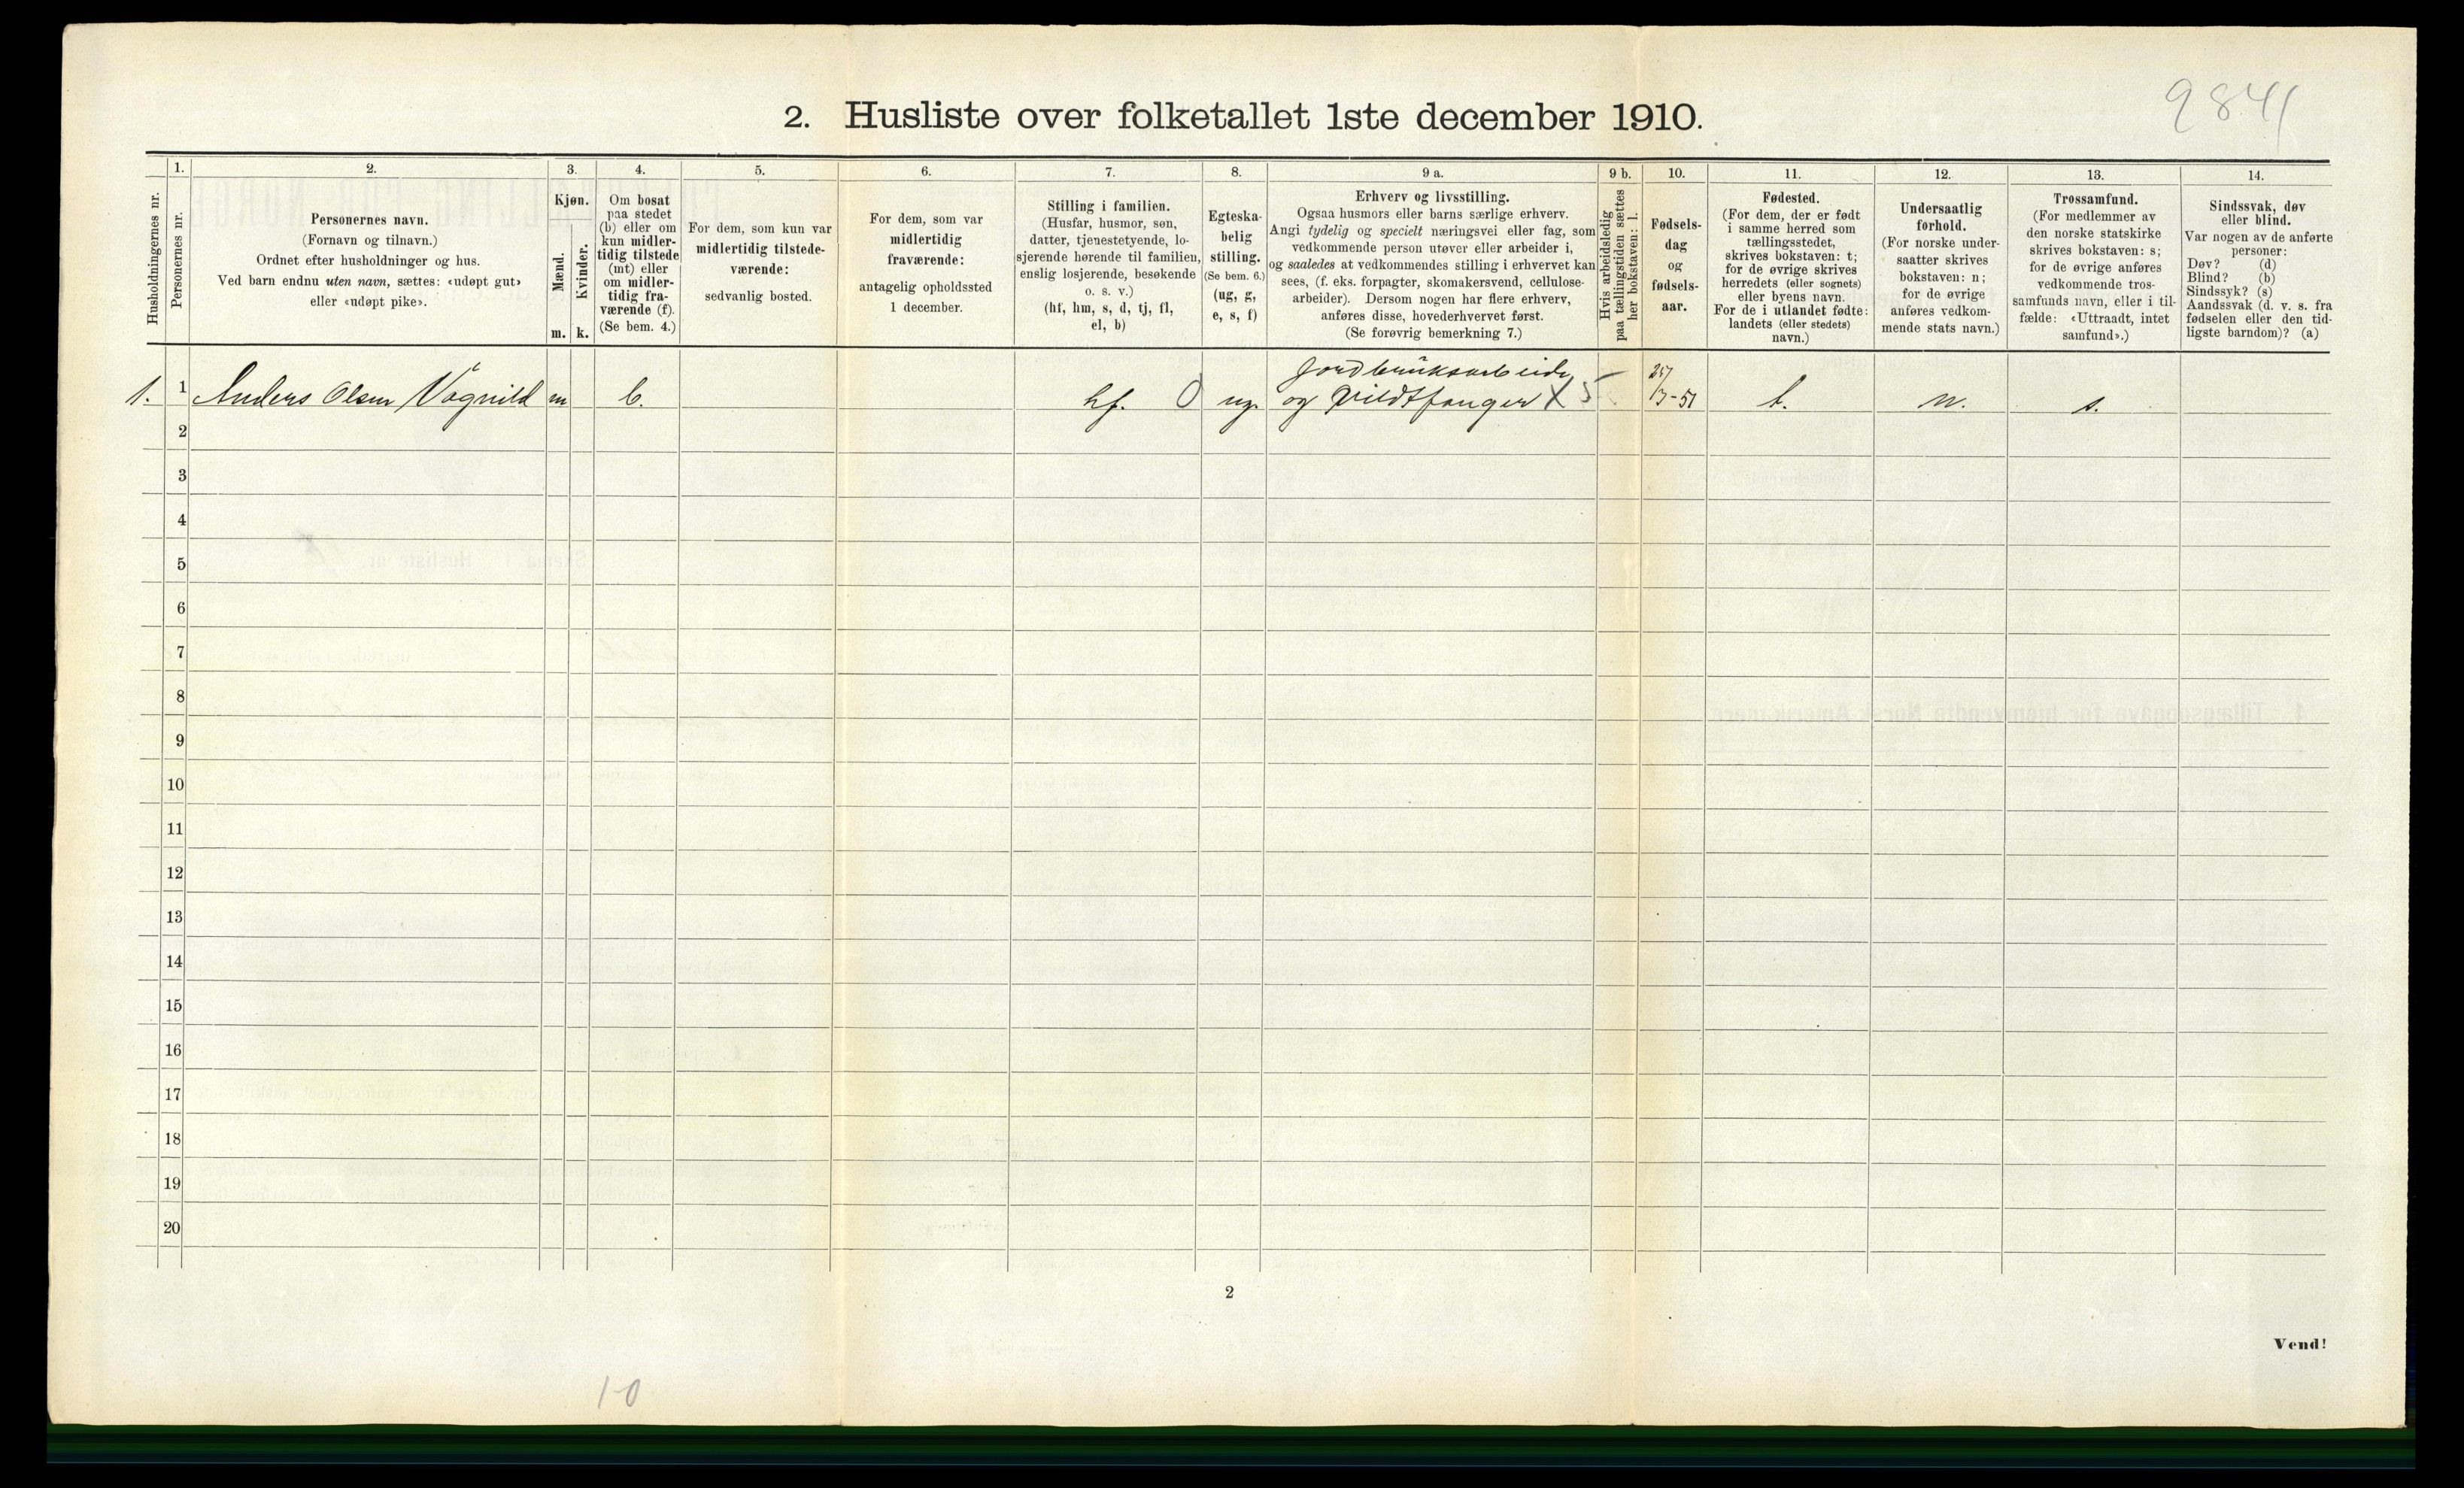 9841
2. Husliste over folketallet 1ste december 1910.
Husholdningernes nr.
1.
Personernes nr.
2.
Personernes navn.
(Fornavn og tilnavn.)
Ordnet efter husholdninger og hus.
Ved barn endnu uten navn, sættes: «udøpt gut»
eller «udøpt pike».
3.
Kjøn.
Mænd.
Kvinder.
m. k.
4.
Om bosat
paa stedet
(b) eller om
kun midler-
tidig tilstede
(mt) eller
om midler-
tidig fra-
værende (f).
(Se bem. 4.)
5.
For dem, som kun var
midlertidig tilstede-
værende:
sedvanlig bosted.
6.
For dem, som var
midlertidig
fraværende:
antagelig opholdssted
1 december.
7.
Stilling i familien.
(Husfar, husmor, søn,
datter, tjenestetyende, lo-
sjerende hørende til familien,
enslig losjerende, besøkende
o. s. v.)
(hf, hm, s, d, tj, fl,
el, b)
8.
Egteska-
belig
stilling.
(Se bem. 6.)
(ug, g,
e, s, f)
9 a.
Erhverv og livsstilling.
Ogsaa husmors eller barns særlige erhverv.
Angi tydelig og specielt næringsvei eller fag, som
vedkommende person utøver eller arbeider i,
og saaledes at vedkommendes stilling i erhvervet kan
sees, (f. eks. forpagter, skomakersvend, cellulose-
arbeider). Dersom nogen har flere erhverv,
anføres disse, hovederhvervet først.
(Se forøvrig bemerkning 7.)
9 b.
Hvis arbeidsledig
paa tællingstiden sættes
her bokstaven: l.
10.
Fødsels-
dag
og
fødsels-
aar.
11.
Fødested.
(For dem, der er født
i samme herred som
tællingsstedet,
skrives bokstaven: t;
for de øvrige skrives
herredets (eller sognets)
eller byens navn.
For de i utlandet fødte:
landets (eller stedets)
navn.)
12.
Undersaatlig
forhold.
(For norske under-
saatter skrives
bokstaven: n;
for de øvrige
anføres vedkom-
mende stats navn.)
13.
Trossamfund.
(For medlemmer av
den norske statskirke
skrives bokstaven: s;
for de øvrige anføres
vedkommende tros-
samfunds navn, eller i til-
fælde: «Uttraadt, intet
samfund».)
14.
Sindssvak, døv
eller blind.
Var nogen av de anførte
personer:
Døv? (d)
Blind? (b)
Sindssyk? (s)
Aandssvak (d. v. s. fra
fødselen eller den tid-
ligste barndom)? (a)
Jordbruksarbeider
1. 1 Anders Olsen Vågnild m b. hf. 0 ug. og Vildtfanger X 5 t. n. s.
2
3
4
5
6
7
8
9
10
11
12
13
14
15
16
17
18
19
20
2
Vend!
1-0